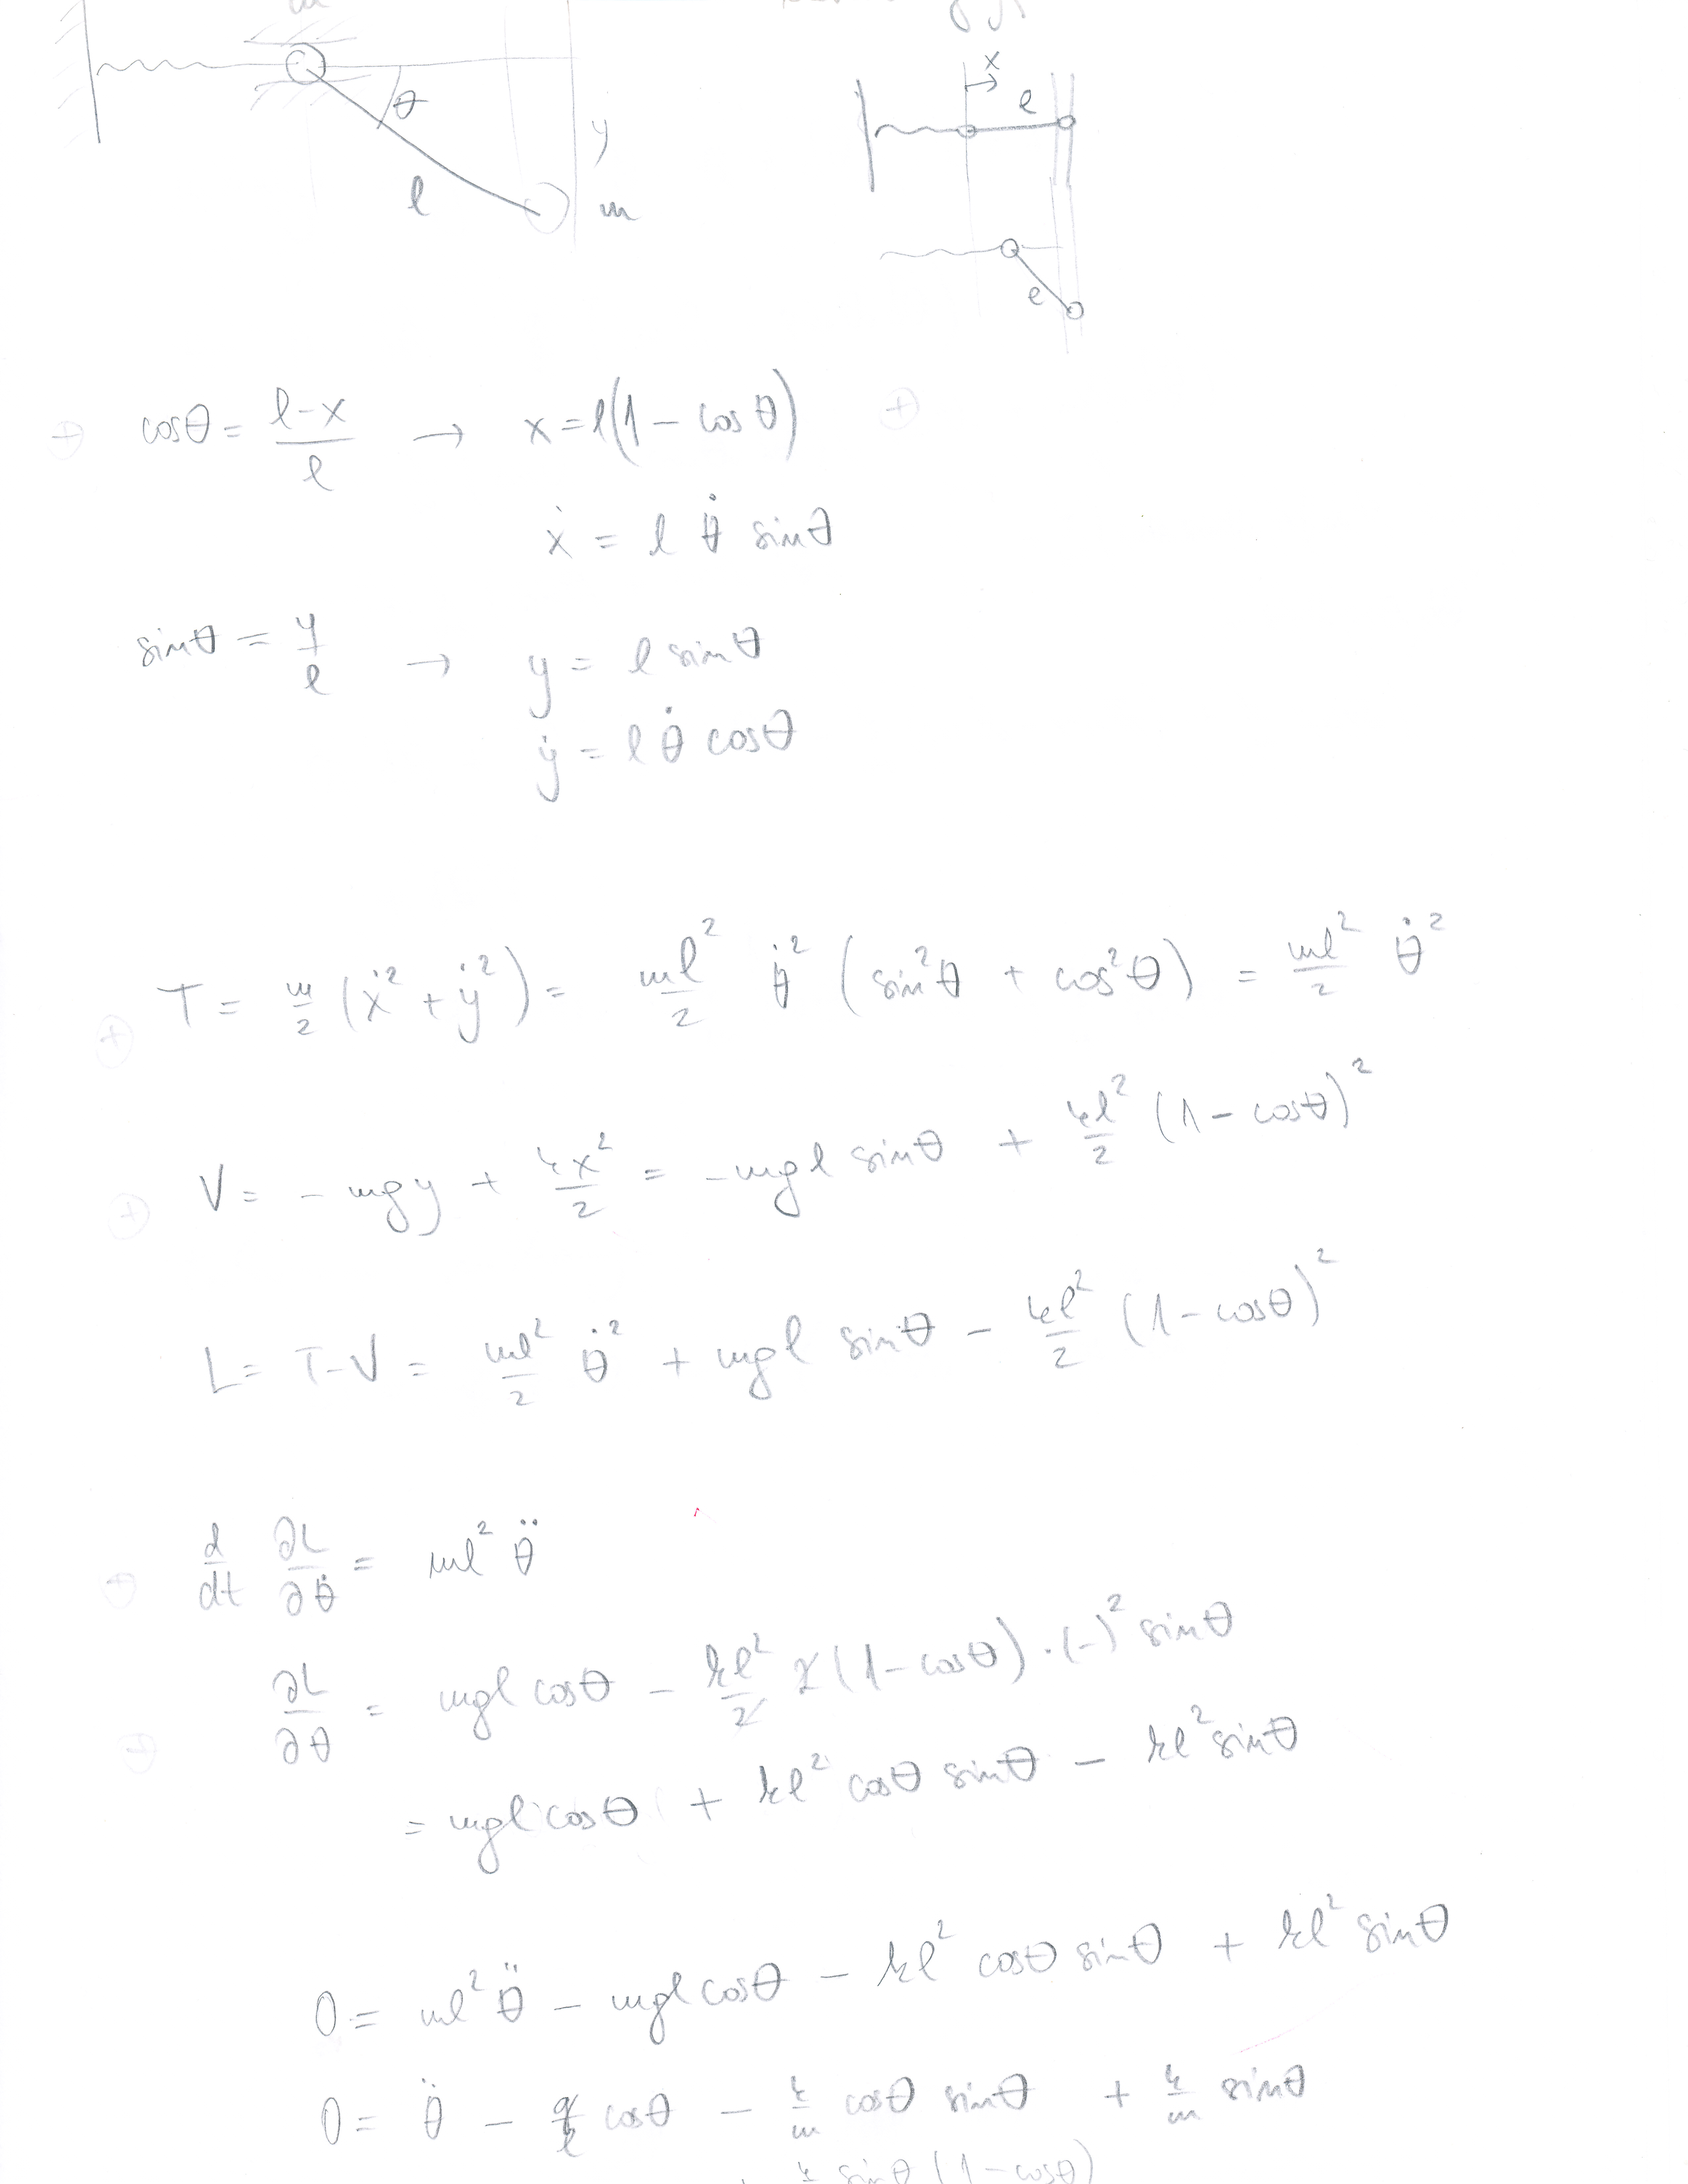 m
θ
y
l
m
x
l
l
⊕ cosθ = (l-x)/l → x = l(1 - cosθ) ⊕
ẋ = l θ̇ sinθ
sinθ = y/l → y = l sinθ
ẏ = l θ̇ cosθ
⊕ T = m/2 (ẋ² + ẏ²) = ml²/2 θ̇² (sin²θ + cos²θ) = ml²/2 θ̇²
⊕ V = - mgy + kx²/2 = -mgl sinθ + kl²/2 (1 - cosθ)²
L = T-V = ml²/2 θ̇² + mgl sinθ - kl²/2 (1-cosθ)²
⊕ d/dt ∂L/∂θ̇ = ml² θ̈
⊕ ∂L/∂θ = mgl cosθ - kl²/2 2(1-cosθ)·(-)² sinθ
= mgl cosθ + kl² cosθ sinθ - kl² sinθ
0 = ml² θ̈ - mgl cosθ - kl² cosθ sinθ + kl² sinθ
0 = θ̈ - g/l cosθ - k/m cosθ sinθ + k/m sinθ
k/m sinθ (1-cosθ)